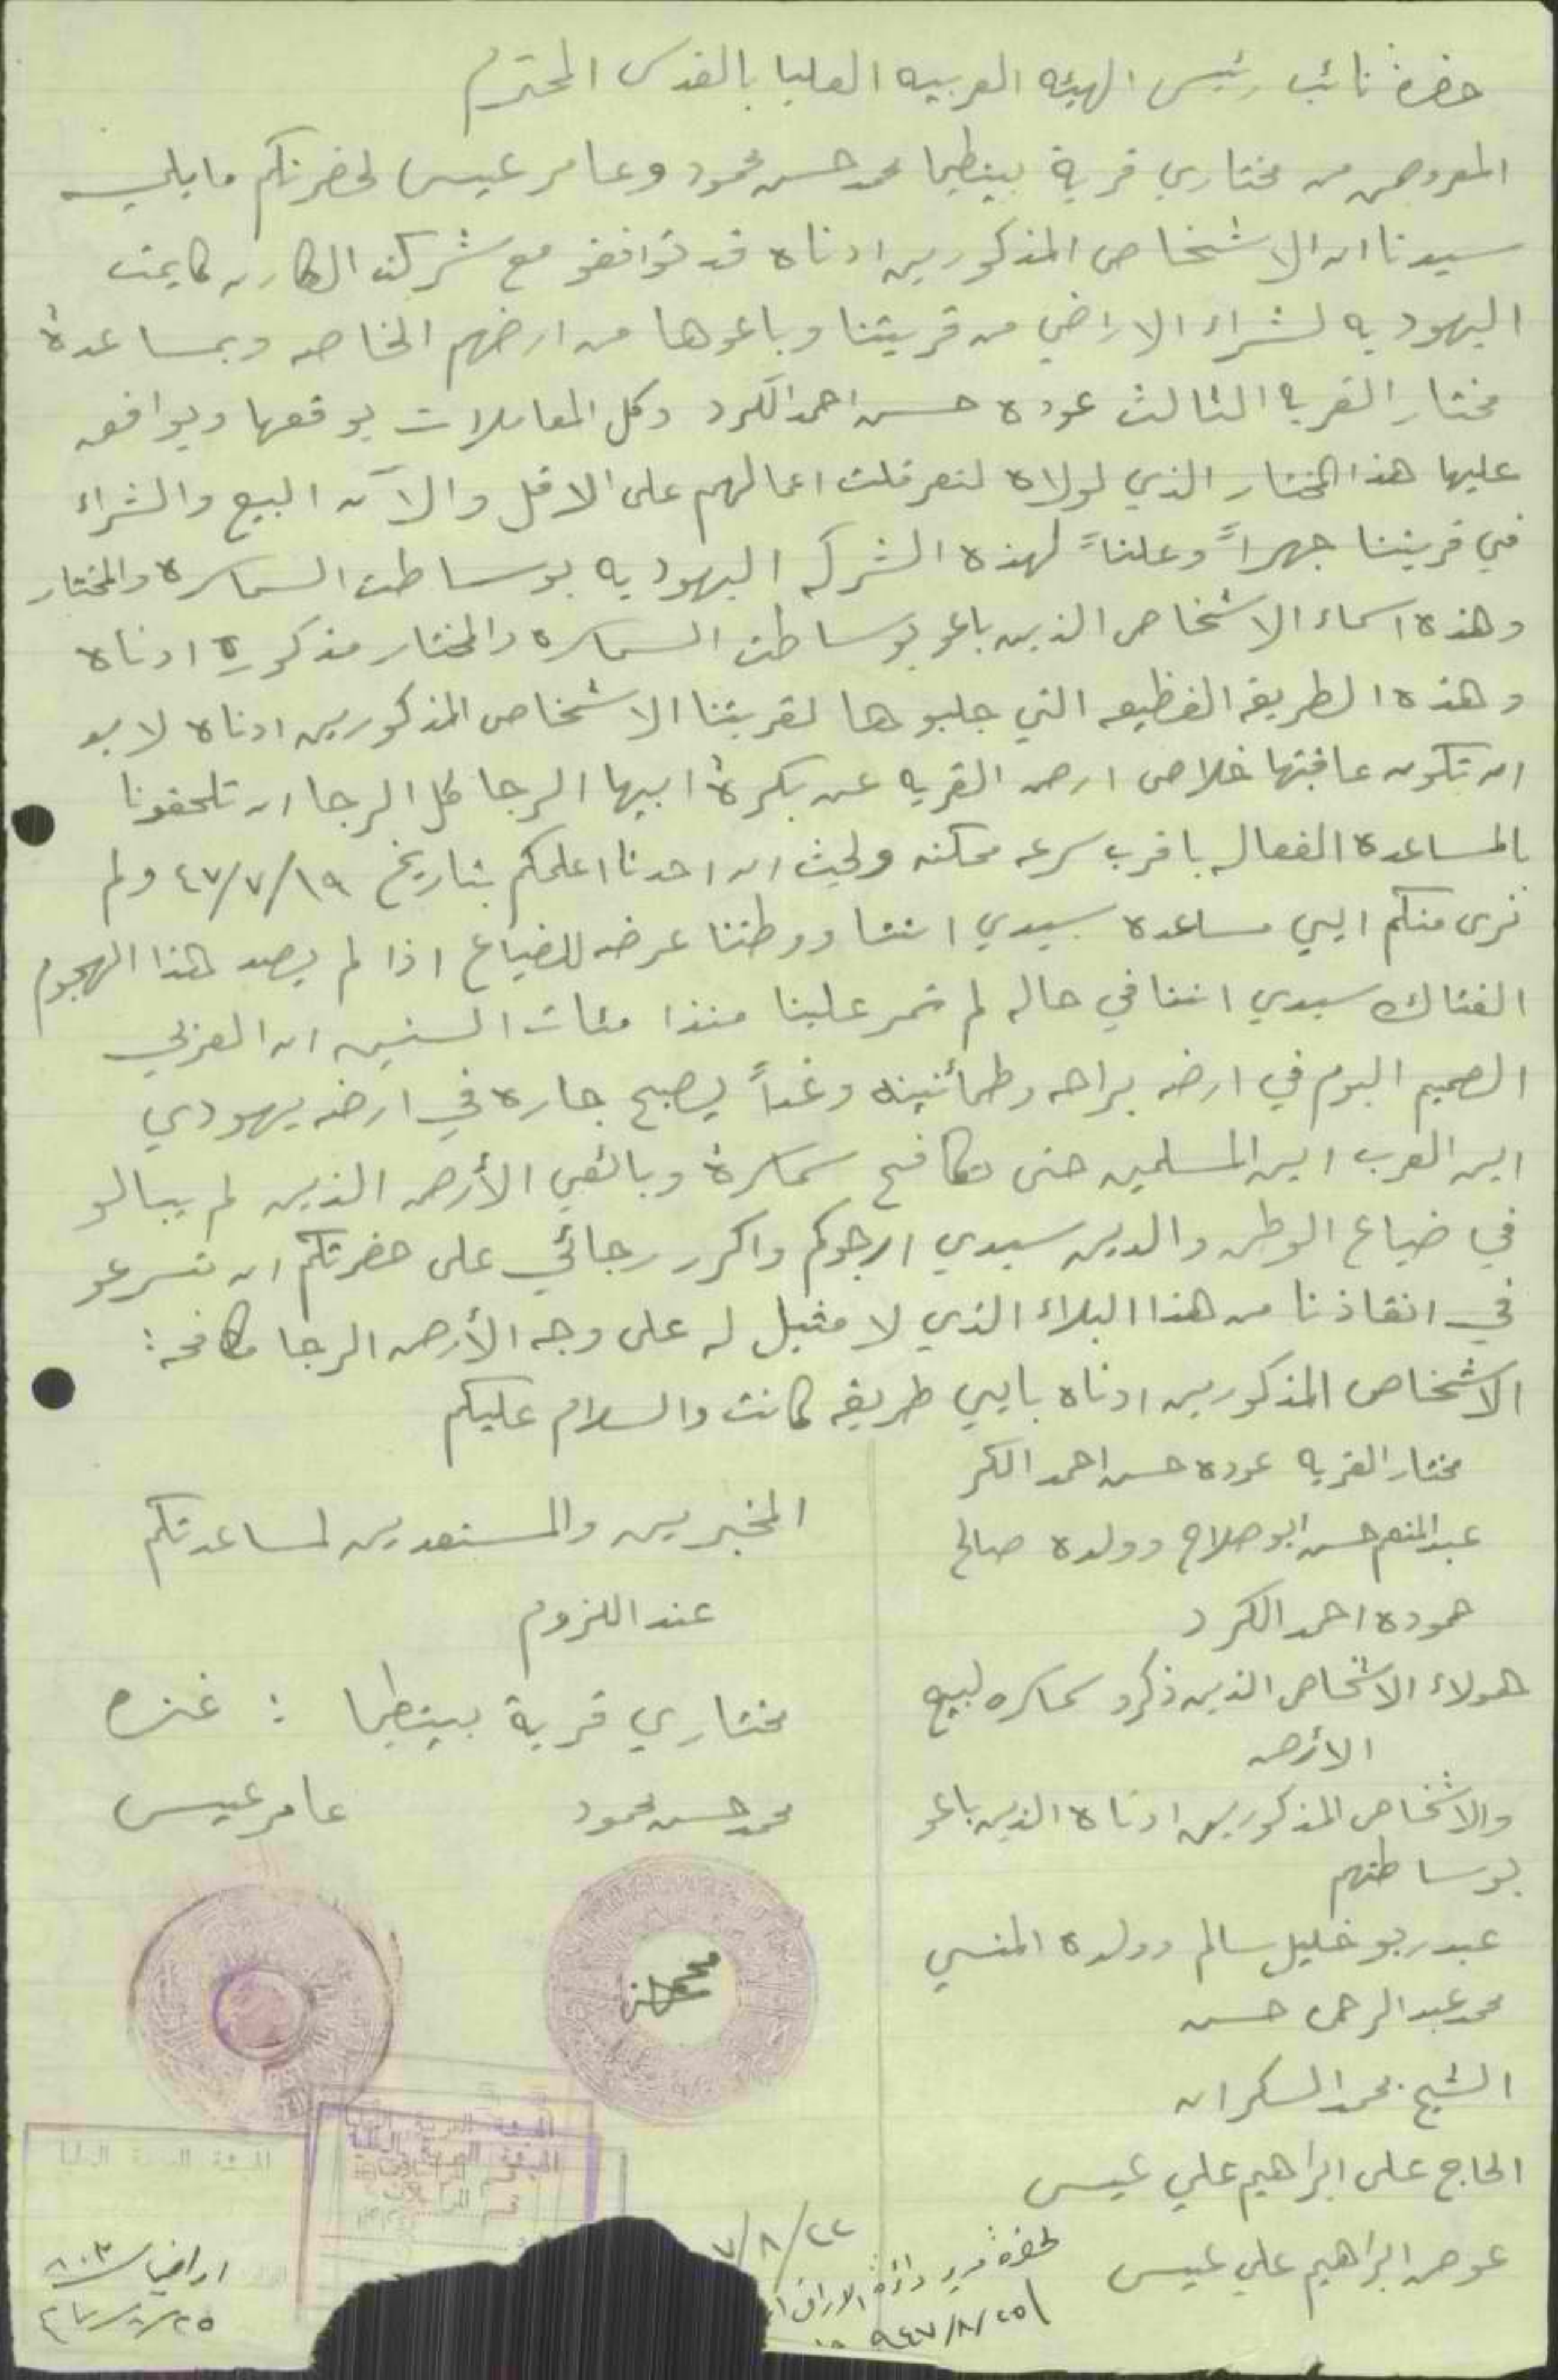 حضرة نائب رئيس الهيئه العربيه العليا بالقدس المحترم
المعروض من مختاري قرية بيتطيما محمد حسن محمود وعامر عيسى لحضرتكم مايلي
سيدنا ان الاشخاص المذكورين ادناه قد توافقو مع شركت الكارن كايمت
اليهوديه لشراء الاراضي من قريتنا وباعوها من ارضهم الخاصه وبمساعدة
مختار القريه الثالث عوده حسن احمد الكرد وكل المعاملات يوقعها ويوافق
عليها هذا المختار الذي لولاه لتعرقلت اعمالهم على الاقل والآن البيع والشراء
في قريتنا جهراً وعلناً لهذه الشركه اليهوديه بوساطت السماسره والمختار
وهذه اسماء الاشخاص الذين باعو بوساطت السماسره والمختار مذكوره ادناه
وهذه الطريقه الفظيعه التي جلبوها لقريتنا الاشخاص المذكورين ادناه لابد
ان تكون عاقبتها خلاص ارض القريه عن بكرة ابيها الرجا كل الرجا ان تلحقونا
بالمساعدة الفعاله باقرب سرعه ممكنه ولحيث ان احدنا اعلمكم بتاريخ ١٩/٧/٤٧ ولم
نرى منكم ايي مساعده سيدي اننا ووطننا عرضه للضياع اذا لم يصد هذا الهجوم
الفتاك سيدي اننا في حاله لم تمر علينا منذا مئات السنين ان العربي
الصميم اليوم في ارضه براحه وطمائنينه وغداً يصبح جاره في ارضه يهودي
اين العرب اين المسلمين حتى تكافح سماسرة وبائعي الأرض الذين لم يبالو
في ضياع الوطن والدين سيدي ارجوكم واكرر رجائي على حضرتكم ان تسرعو
في انقاذنا من هذا البلاء الذي لا مثيل له على وجه الأرض الرجا مكافحه:
الاشخاص المذكورين ادناه بايي طريقه كانت والسلام عليكم
مختار القريه عوده حسن احمد الكر
عبدالمنعم حسن ابو صلاح وولده صالح
حموده احمد الكرد
هولاء الاشخاص الذين ذكرو سماسره لبيع
الأرض
والاشخاص المذكورين ادناه الذين باعو
بوساطتهم
عبدربو خليل سالم وولده المنسي
محمد عبد الرحمن حسن
الشيخ محمد السكران
الحاج على ابراهيم علي عيسى
عوض ابراهيم علي عيسى
المخبرين والمستعدين لمساعدتكم
عند اللزوم
مختاري قرية بيتطيما : غزه
محمد حسن محمود عامر عيسى
الهيئة العربية العليا
٢٢/٨/٧
لحضرة مدير دائرة الاراضي
٢٥/٨/٩٤٧
اراضي